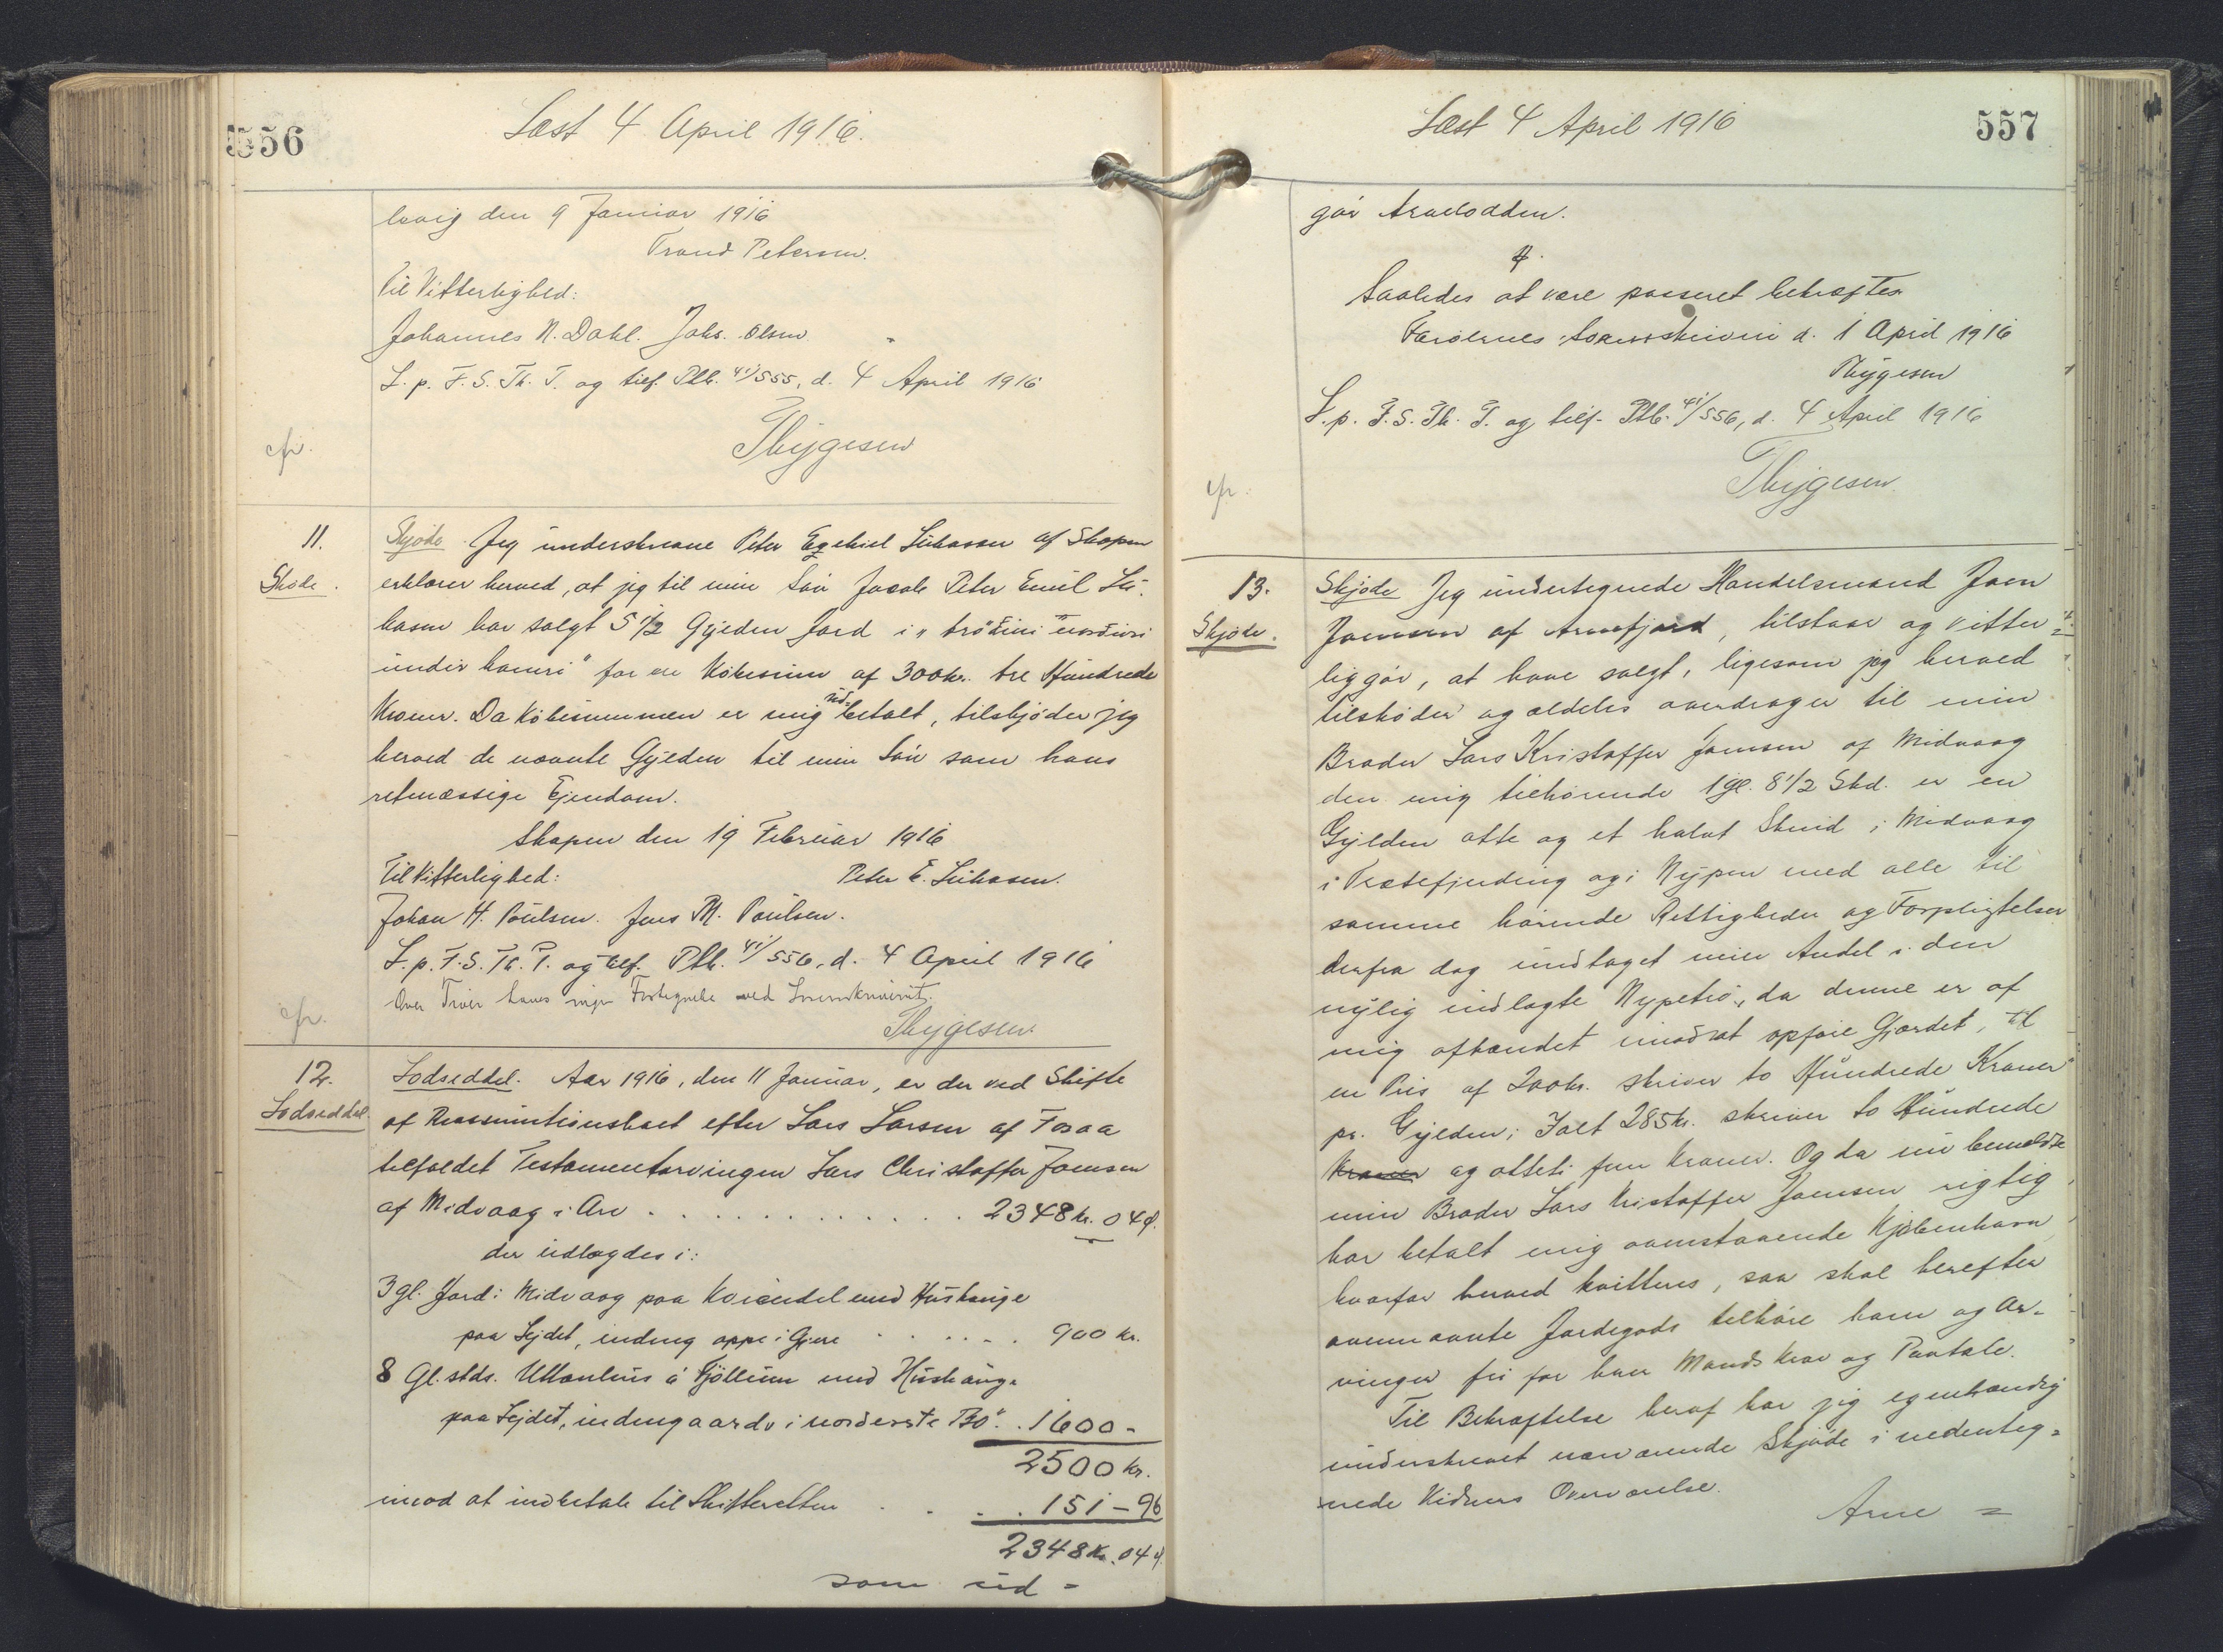 556
Læst 4 April 1916.
havig den 9 Januar 1916
Trond Petersen.
Til Vitterlighed:
Johannes N. Dahl. Johs. Olsen
L. p. F. S. Th. T. og tilf. Ptb. 41/555, d. 4 April 1916
Thygesen
cfr.
11.
Skøde.
Skjøde Jeg underskrevne Peter Ezekiel Lükasen af Skopen
erklærer herved, at jeg til min Søn Jacob Peter Emil Lü-
kasen har solgt 5 1/2 Gylden Jord i "
undir hamri" for en Købesum af 300 kr. tre Hundrede
Kroner. Da Købesummen er mig udbetalt, tilskjøder jeg
herved de nævnte Gylden til min Søn som hans
retmæssige Ejendom.
Skopen den 19 Februar 1916
Til Vitterlighed:
Peter E. Lükasen.
Johan H. Poulsen. Jens M. Poulsen.
L. p. F. S. Th. T. og tilf. Ptb. 41/556, d. 4 April 1916
Over Trøer haves ingen Fortegnelse ved Sorenskriveriet.
cfr.
Thygesen
12.
Lodseddel.
Lodseddel. Aar 1916, den 11 Januar, er der ved Skifte
af Reassumtionsboet efter Lars Larsen af Fosaa
tilfaldet Testamentarvingen Lars Christoffer Joensen
af Midvaag i Arv . . . . 2348 kr. 04 ø.
der udlægdes i:
3 gl. Jord i Midvaag paa med Hushauge
paa Lejdet, indeng oppe i Gjere . . . . 900 kr.
8 Gl. stds. Uttanhus á Fjøllum med Hushauge
paa Lejdet, indengaards i norderste Bø". . 1600 -
2500 kr.
imod at indbetale til Skifteretten . . . 151 - 96
2348 Kr. 04 ø.
som ud =
Læst 4 April 1916
557
gør Arvelodden.
Saaledes at være passeret bekræftes
Færøernes Sorenskriveri d. 1 April 1916
Thygesen
L. p. F. S. Th. T. og tilf. Ptb. 41/556, d. 4 April 1916
Thygesen
cfr.
13.
Skjøde.
Skjøde Jeg undertegnede Handelsmand Joen
Joensen af Arnefjord, tilstaar og vitter=
liggør, at have solgt, ligesom jeg herved
tilskøder og aldeles overdrager til min
Broder Lars Kristoffer Joensen af Midvaag
den mig tilhørende 1 gl. 8 1/2 Skd. er en
Gylden otte og et halvt Skind i Midvaag
i Trætefjerding og i Nypen med alle til
samme hørende Rettigheder og Forpligtelser
derfra dog undtaget min Andel i den
nylig indlagte Nypetrø, da denne er af
mig afhændet imod at opføre Gjærdet, til
en Pris af 200 kr. skriver to Hundrede Kroner
pr. Gylden; Ialt 285 kr. skriver to Hundrede
Kroner og otteti fem Kroner. Og da nu bemeldte
min Broder Lars Kristoffer Joensen rigtig
har betalt mig ovenstaaende Kjøbenhavn
hvorfor herved kvitteres, saa skal herefter
ovennævnte Jordegods tilhøre ham og Ar-
vinger fri for hver Mands Krav og Paatale.
Til Bekræftelse heraf har jeg egenhændig
underskrevet nærværende Skjøde i nedenteg=
nede Vidners Overværelse.
Arne =